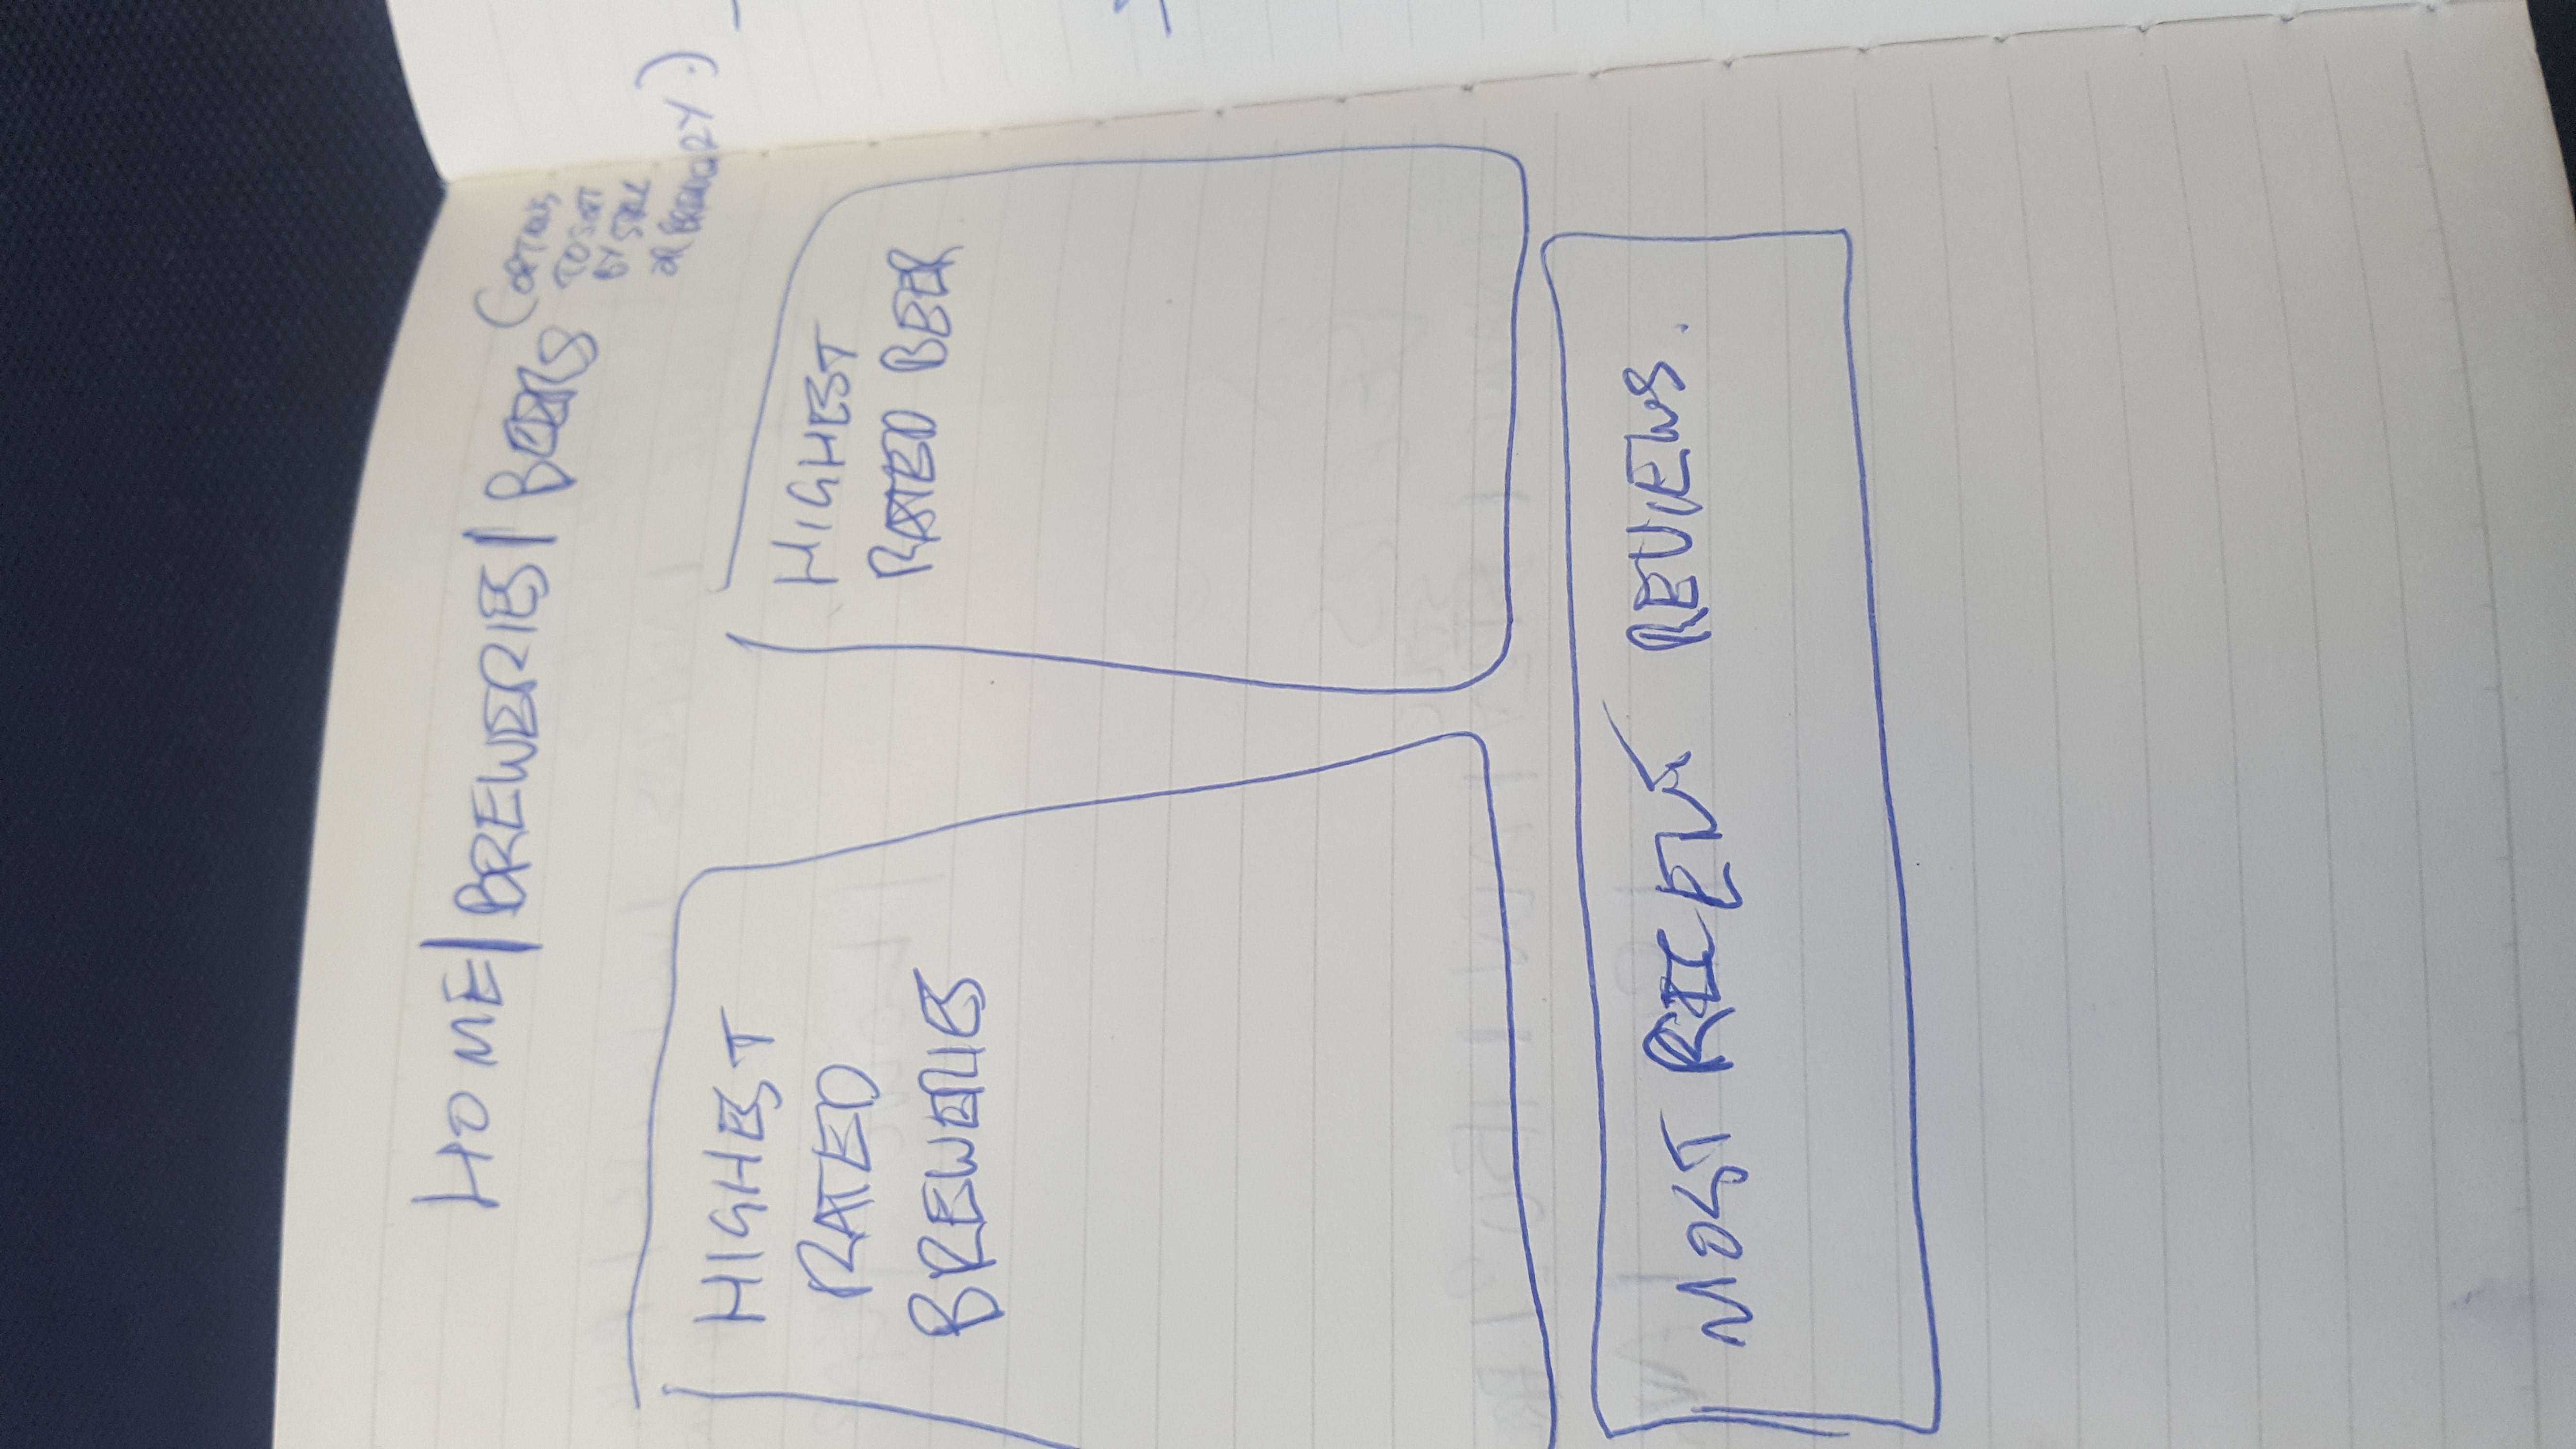 HOME | BREWERIES | BEERS (OPTIONS
TO SORT
BY STYLE
OR BREWERY.)
HIGHEST
RATED
BREWERIES
HIGHEST
RATED BEER
MOST RECENT REVIEWS.